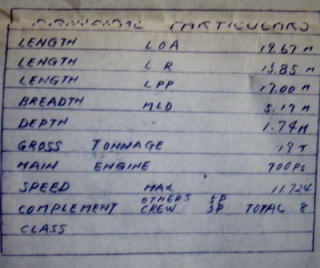 PRINCIPAL PARTICULARS
LENGTH LOA 19.67 M
LENGTH L R
LENGTH LPP 17.00 M
BREADTH MLD 5.17 M
DEPTH 1.74M
GROSS TONNAGE 19 T
MAIN ENGINE 700PS
SPEED MAX
COMPLEMENT OTHERS 5P CREW 3P TOTAL 8
CLASS